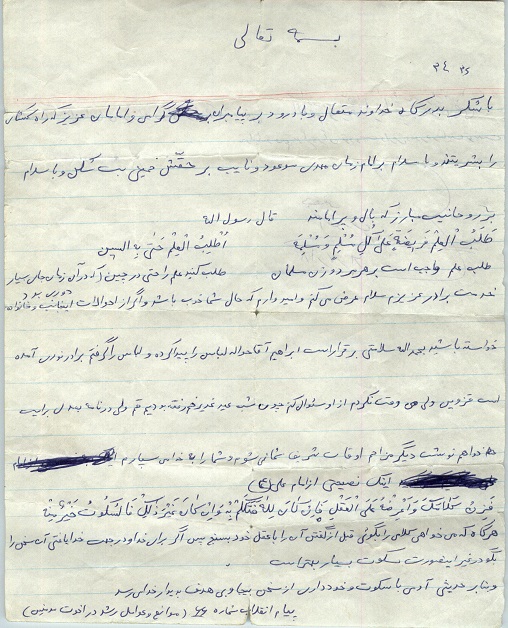 بسمه تعالی
با تشکر بدرگاه خداوند متعال و با درود بر پیامبران گرامی و امامان عزیز که راه کمال
را بشر یتند و با سلام بر امام زمان مهدی موعود و نایب بر حقش خمینی بت شکن و با سلام
بر روحانیت مبارز که بال و پر امامند قال رسول اله
طَلَبُ الْعِلْمِ فَریضَةٌ عَلیٰ کُلِّ مُسْلِمٍ وَ مُسْلِمَةٍ اُطْلُبُ الْعِلْمَ حَتّیٰ بِه السین
طلب علم واجب است بر هر مرد و زن مسلمان طلب کنید علم را حتی در چین که در آن زمان جای بسیار دوری بود
خدمت برادر عزیزم سلام عرض می کنم و امیدوارم که حال شما خوب باشد و اگر از احوالات اینجانب و خانواده
خواسته باشید بحمداله سلامتی برقرار است ابراهیم آقا حواله لباس را پیدا کرده و لباس را گرفتم برادر نوری آمده
است قزوین ولی هی وقت نکردم از او سئوال کنم چون شب عید غدیر خم رفته بودیم قم ولی در نامه بعدی برایت
خواهم نوشت دیگر مزاحم اوقات شریف شما نمی شوم و شما را به خدا می سپارم
اینک نصیحتی از امام علی (ع)
فَزِنْ کَلامَکَ وَ اعْرِضْهُ عَلَی الْعَقْلِ فَاِنْ کانَ لِلّهِ فَتَکَلَّمْ بِهِ وَ اِنْ کانَ غَیْرَ ذٰلِکَ فَالسُّکُوتُ خَیْرٌ مِنْهُ
هرگاه که می خواهی کلامی را بگوئی قبل از گفتن آن را با عقل خود بسنج پس اگر برای خدا و در جهت خدا یافتی آن سخن را
بگو در غیر اینصورت سکوت بسیار بهتر است
و بنابر حدیثی آدمی با سکوت و خودداری از سخن بیجا و بی هدف به دیدار خدا می رسد
پیام انقلاب شماره ۶۶ (موانع و عوامل رشد در اخوت مومنین)